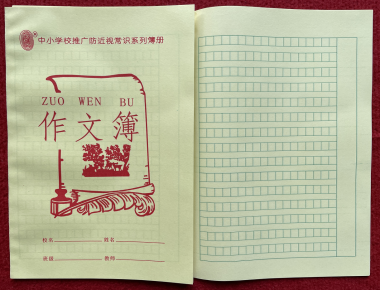 中小学校推广防近视常识系列簿册
ZUO WEN BU
作文簿
校名 姓名
班级 教师